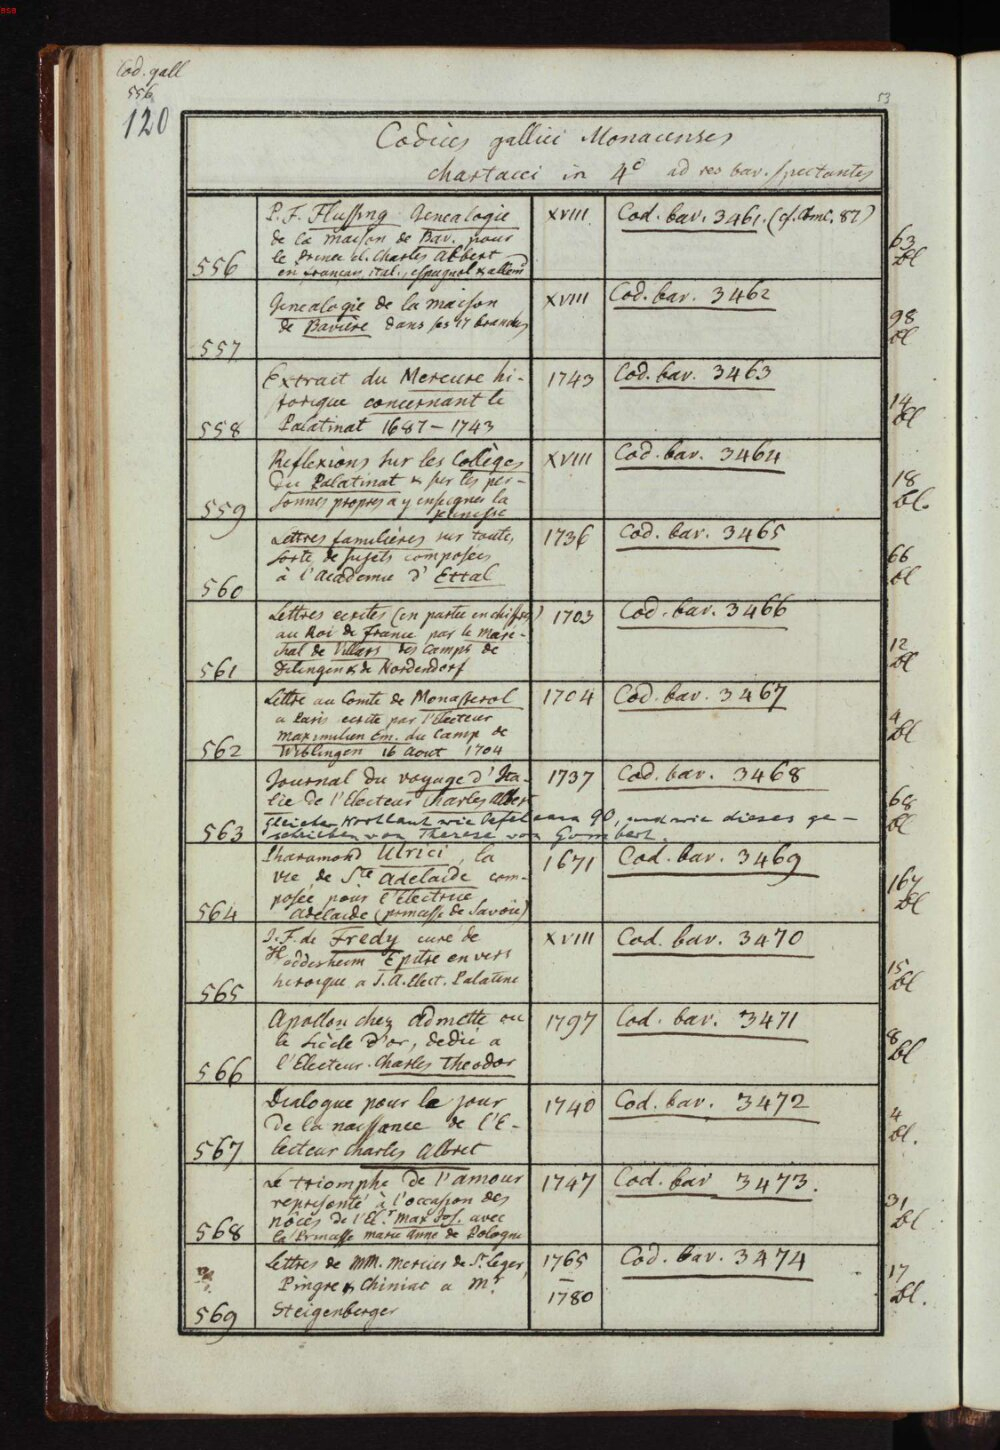 Cod. gall
556
120
53
Codices gallici Monacenses
chartacei in 4° ad res bav. spectantes
556
P. F. Flussing Genealogie
de la maison de Bav. pour
le Prince el. Charles Albert
en français, ital., espagnol & allem
XVIII
Cod. bav. 3461. (cf. Cimc. 87)
63
bl
557
Genealogie de la maison
de Baviere dans ses 17 branches
XVIII
Cod. bav. 3462
98
bl
558
Extrait du Mercure hi-
storique concernant le
Palatinat 1687 – 1743
1743
Cod. bav. 3463
14
bl
559
Reflexions sur les Collèges
du Palatinat & sur les per-
sonnes propres a y enseigner la
jeunesse
XVIII
Cod. bav. 3464
18
bl.
560
Lettres familières sur toutes
sorte de sujets composees
à l'academie d'Ettal
1736
Cod. bav. 3465
66
bl
561
Lettres ecrites (en partie en chiffres)
au Roi de france par le mare-
chal de Villars des Camps de
Dilingen & de Nordendorf
1703
Cod. bav. 3466
12
bl
562
Lettre au Comte de Monasterol
a Paris ecrite par l'Electeur
maximilien Em. du Camp de
Wiblingen 16 Aout 1704
1704
Cod. bav. 3467
4
bl
563
Journal du voyage d'Ita-
lie de l'Electeur Charles Albert
1737
Cod. bav. 3468
gleicher Wortlaut wie Oefeleana 90, und wie dieses ge-
schrieben von Therese von Gombert.
68
bl
564
Pharamond Ulrici, la
vie de Ste Adelaide com-
posée pour l'Electrice
Adelaide (princesse de Savoie)
1671
Cod. bav. 3469
167
bl
565
J. F. de Fredy curé de
Heddesheim Epitre en vers
heroique a S. A. Elect. Palatine
XVIII
Cod. bav. 3470
15
bl
566
Apollon chez Admette ou
le Siècle d'or, dedié a
l'Electeur Charles Theodor
1797
Cod. bav. 3471
8
bl
567
Dialogue pour le jour
de la naissance de l'E-
lecteur Charles Albert
1740
Cod. bav. 3472
4
bl.
568
Le triomphe de l'amour
representé à l'occasion des
nôces de l'El.r Max Jos. avec
la Princesse marie Anne de Pologne
1747
Cod. bav 3473.
31
bl
569
Lettres de MM. Mercier de St. Leger,
Pingre & Chiniac a Mr.
Steigenberger
1765
–
1780
Cod. bav. 3474
17
bl.